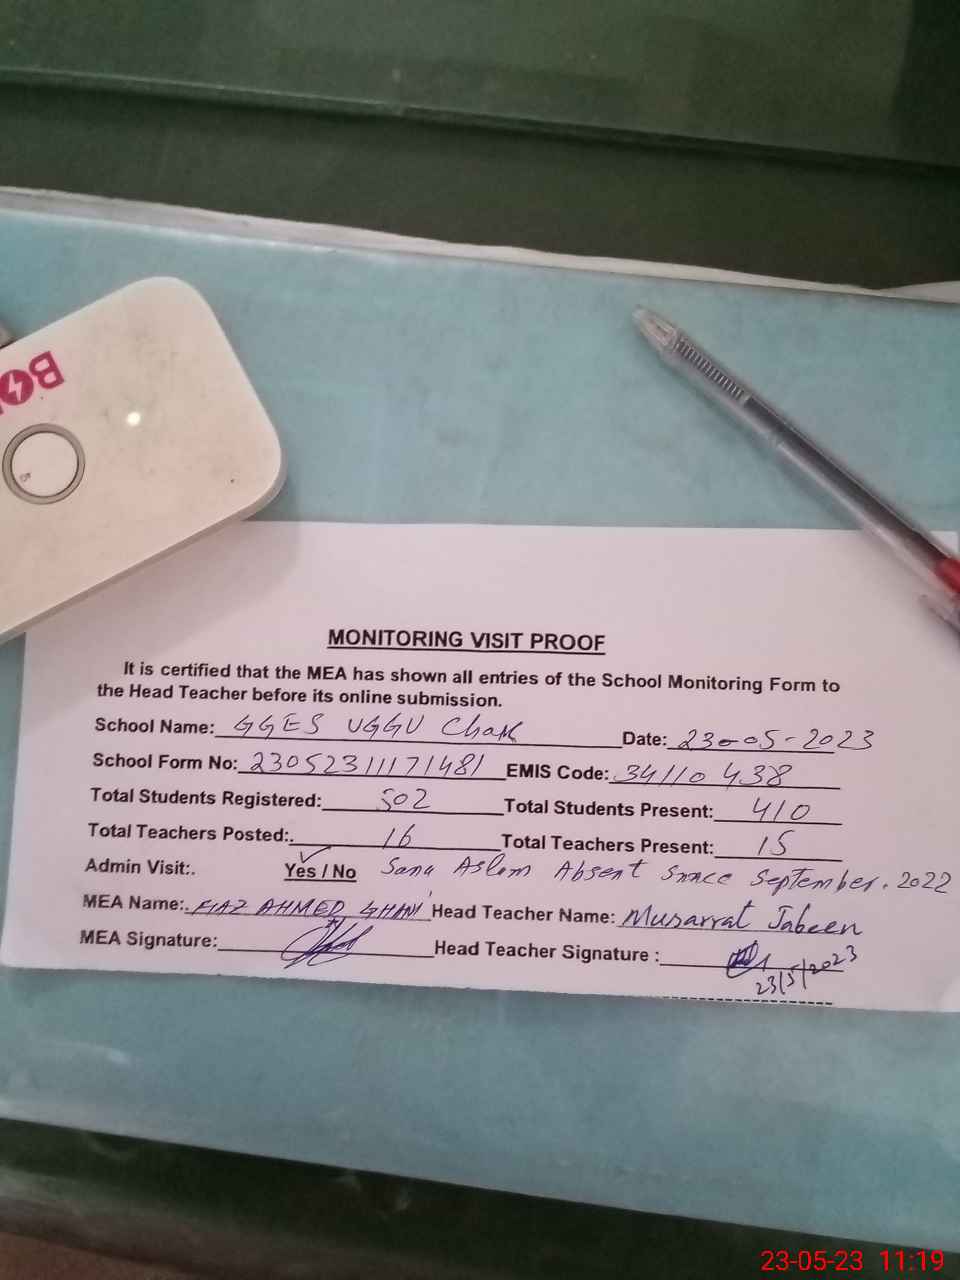 BO
4G
MONITORING VISIT PROOF
It is certified that the MEA has shown all entries of the School Monitoring Form to
the Head Teacher before its online submission.
School Name: GGES UGGU Chak Date: 23-05-2023
School Form No: 23052311171481 EMIS Code: 34110438
Total Students Registered: 502 Total Students Present: 410
Total Teachers Posted:. 16 Total Teachers Present: 15
Admin Visit:. Yes / No Sana Aslam Absent Snnce September. 2022
MEA Name:. FIAZ AHMED GHANI Head Teacher Name: Musarrat Jabeen
MEA Signature: Head Teacher Signature :
23/5/2023
23-05-23 11:19